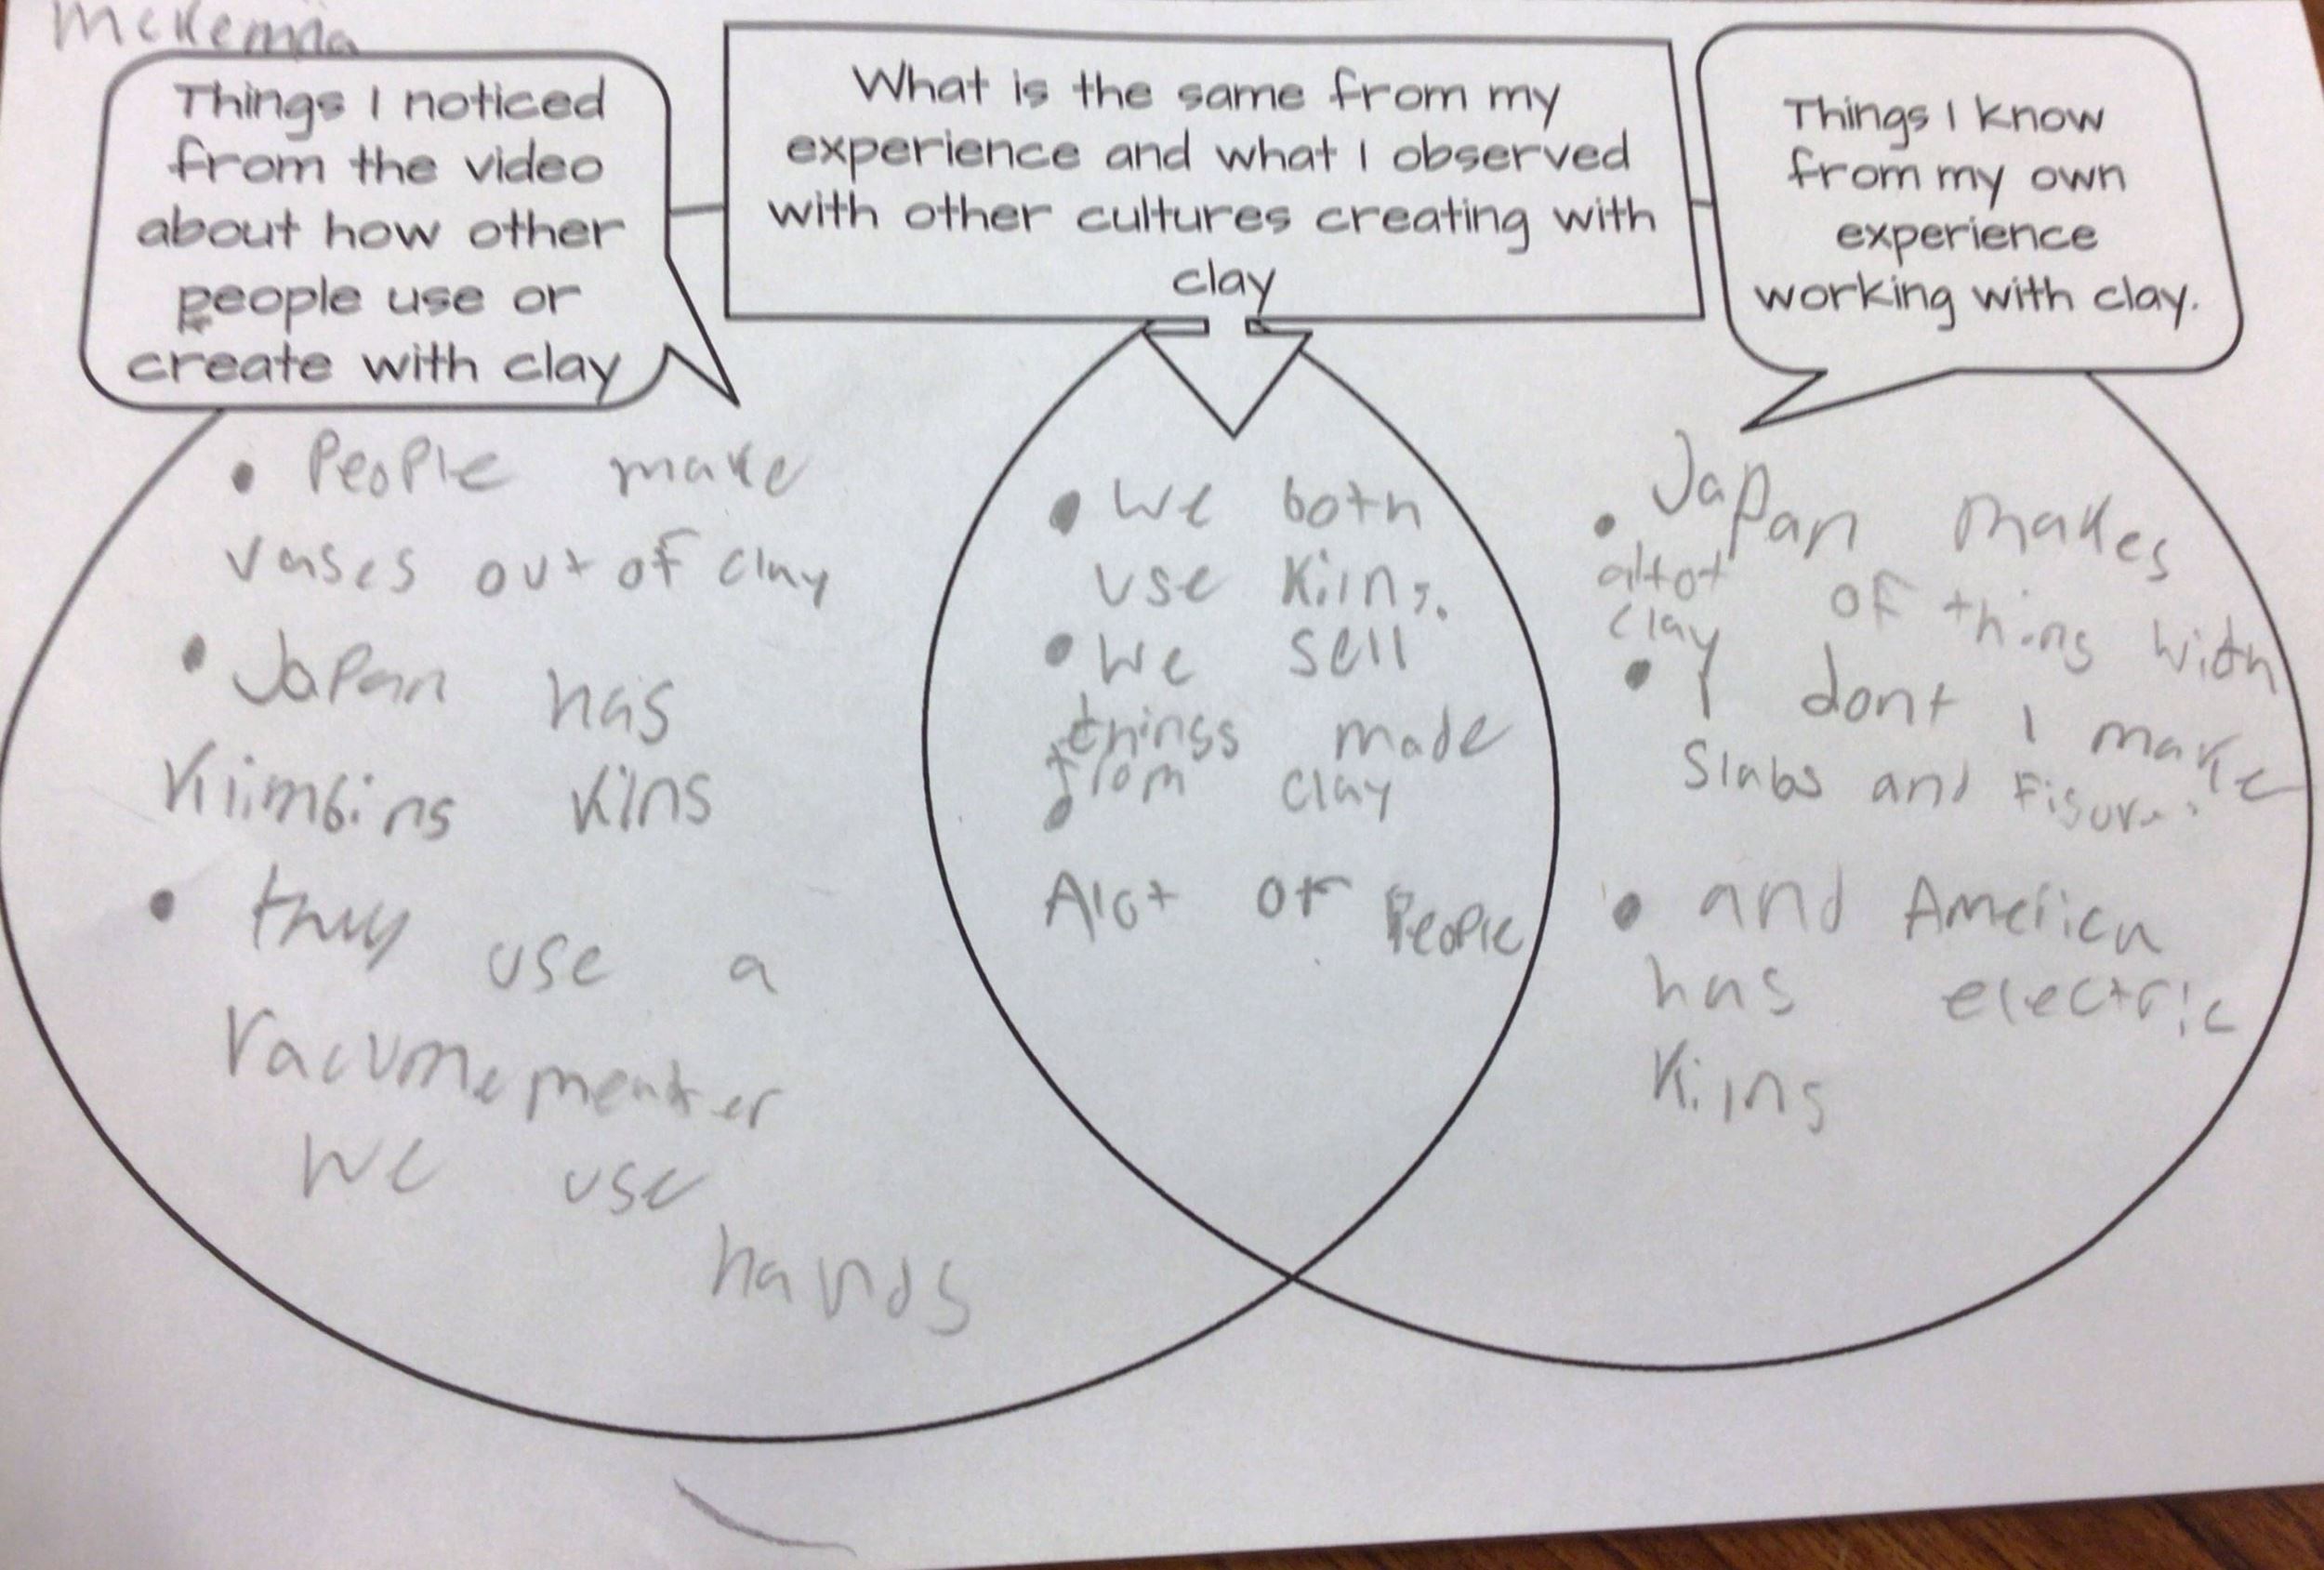 McKenna
Things I noticed
from the video
about how other
people use or
create with clay
What is the same from my
experience and what I observed
with other cultures creating with
clay
Things I know
from my own
experience
working with clay.
• People make
vases out of clay
• Japan has
Kiimbins Kilns
• they use a
we use
hands
• We both
use Kilns.
• We sell
things made
from clay
•
Alot of People
• Japan makes
altot of thing with
clay
• I dont I make
Slabs and Figures
• and America
has electric
Kilns